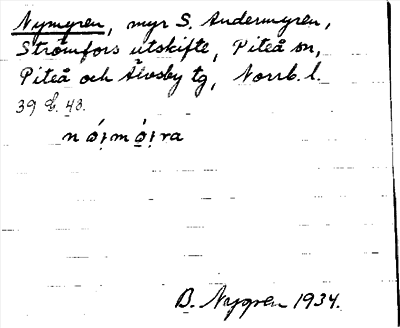 Nymyren, myr S. Andermyren,
Strömfors utskifte, Piteå sn,
Piteå och Älvsby tg, Norrb. l.
39 43.
B. Nygren 1934.